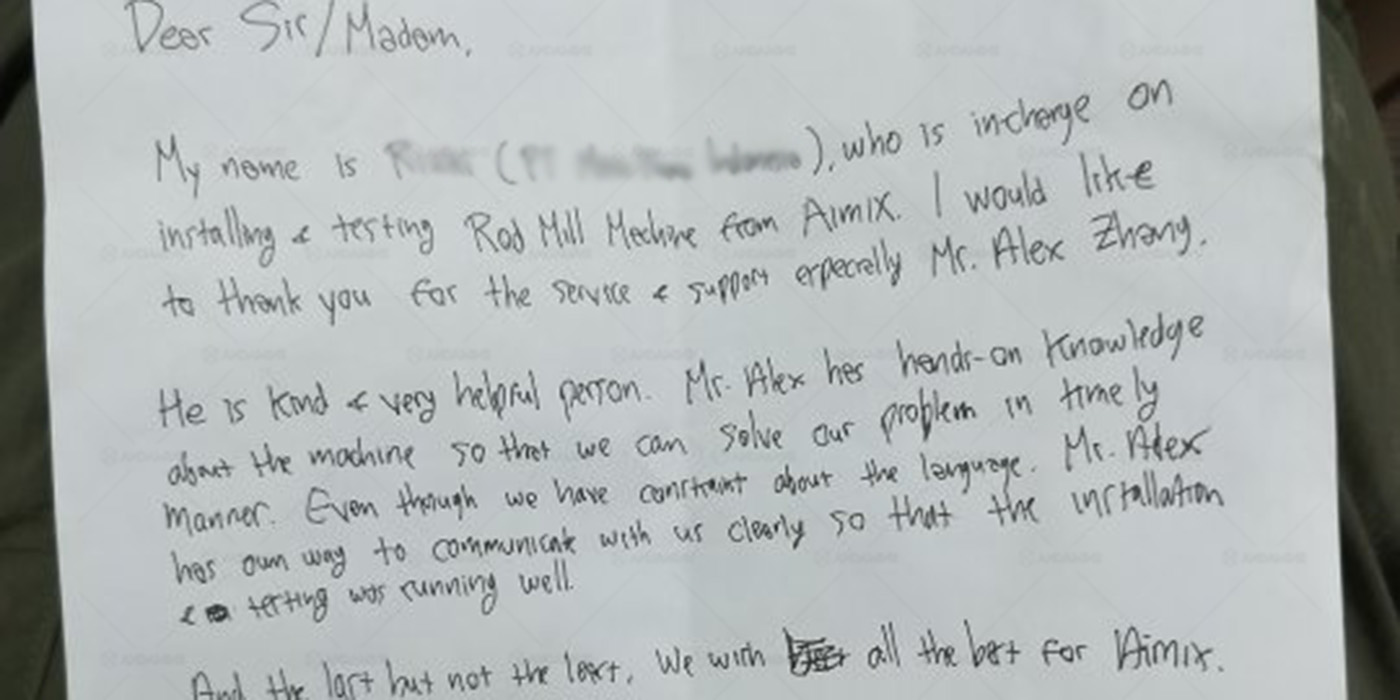 Dear Sir/Madam,
My name is (PT ), who is incharge on
installing & testing Rod Mill Machine from Aimix. I would like
to thank you for the service & support especially Mr. Alex Zhang.
He is kind & very helpful person. Mr. Alex has hands-on knowledge
about the machine so that we can solve our problem in timely
manner. Even though we have constraint about the language. Mr. Alex
has own way to communicate with us clearly so that the installation
& testing was running well.
And the last but not the least, We wish all the best for Aimix.